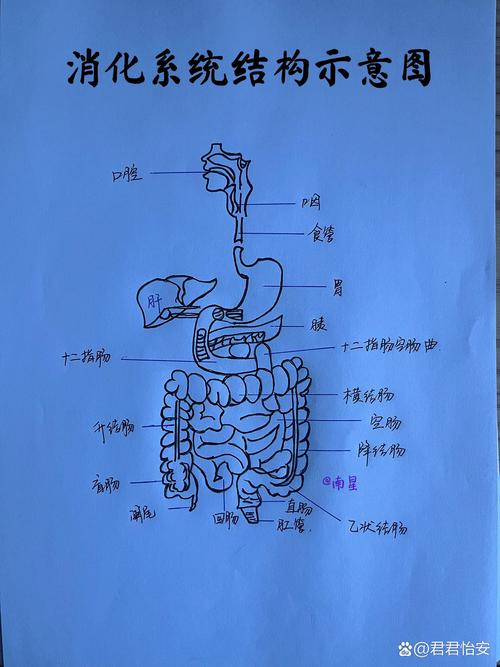 消化系统结构示意图
口腔
咽
食管
胃
肝
胰
十二指肠
十二指肠空肠曲.
横结肠
升结肠
空肠
降结肠
盲肠
@南星
阑尾
回肠
直肠
肛管.
乙状结肠
@君君怡安